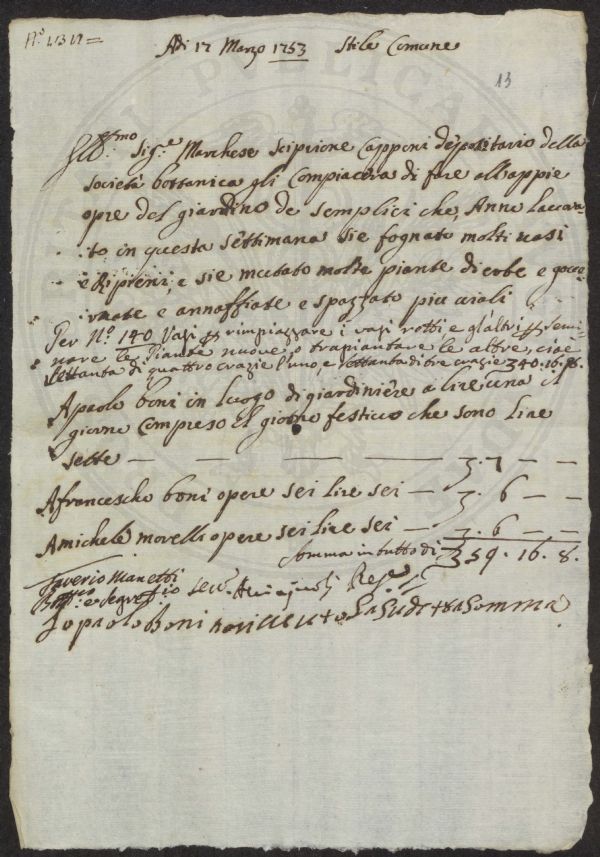 Adi 17 Marzo 1753 Stile Comune
13
Ill.mo Sig.e Marchese Scipione Capponi depositario della
società bottanica gli Compiacera di fare all'appie
opre del giardino de semplici che, Anno laccora
to, in questa settimana sie fognato molti vasi
e Ripieni, e sie mutato molte piante di erbe e
e annaffiate e spazzato piu viali
Per N.º 140 Vasi p rimpiazzare i vasi rotti, e gl'altri p semi-
nare le Piante nuove o trapiantare le altre, cioè
settanta di quattro crazie l'uno, e settanta di tre crazie 3 40. 16. 8.
A paolo boni in luogo di giardiniere a lire una il
giorno Compreso el giorno festivo che sono lire
sette — — — — 3. 7 — —
A francescho boni opere sei lire sei — 3. 6 — —
A michele morelli opere sei lire sei — 3. 6 — —
Somma in tutto di 3 59. 16. 8.
Saverio Manetti
Segret.io
Io paolo Boni o ricevuto La Sudetta Somma